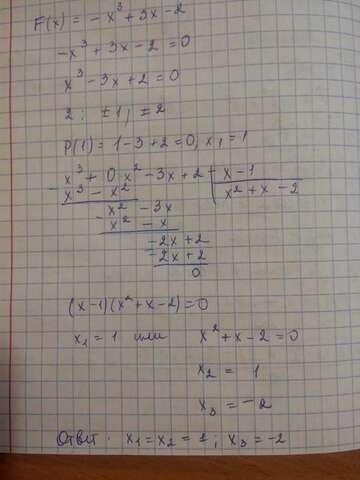 F(x) = -x³ + 3x - 2
-x³ + 3x - 2 = 0
x³ - 3x + 2 = 0
2: ±1; ±2
P(1) = 1 - 3 + 2 = 0, x₁ = 1
x³ + 0x² - 3x + 2 | x - 1
x³ - x² | x² + x - 2
x² - 3x
x² - x
-2x + 2
-2x + 2
0
(x-1)(x² + x - 2) = 0
x₁ = 1 или x² + x - 2 = 0
x₂ = 1
x₃ = -2
Ответ: x₁ = x₂ = 1; x₃ = -2